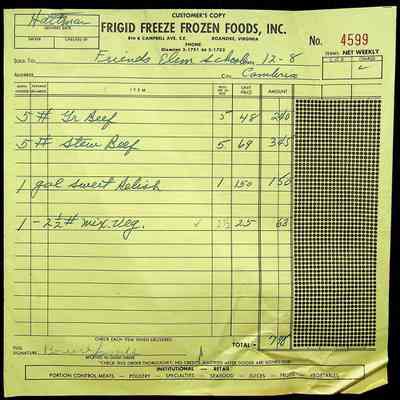 CUSTOMER'S COPY
Hartman
FRIGID FREEZE FROZEN FOODS, INC.
8th & CAMPBELL AVE. S.E. ROANOKE, VIRGINIA
PHONE
DIamond 2-1701 or 2-1702
No. 4599
TERMS: NET WEEKLY
DRIVER CHECKED BY
SOLD TO Friends Elem School 12-8
C.O.D. CHARGE
ADDRESS City Cambria
ITEM UNIT PRICE AMOUNT
5 # Gr Beef 5 48 240
5 # Stew Beef 5 69 345
1 gal Sweet Relish 1 150 150
1 - 2½ # mix. Veg. 2½ 25 63
CHECK EACH ITEM WHEN DELIVERED
TOTAL 798
FULL SIGNATURE
RECEIVED IN GOOD ORDER
"CHECK THIS ORDER THOROUGHLY; NO CREDITS AFTER GOODS ARE SIGNED FOR"
INSTITUTIONAL - RETAIL
PORTION CONTROL MEATS - POULTRY - SPECIALTIES - SEAFOOD - JUICES - FRUITS - VEGETABLES